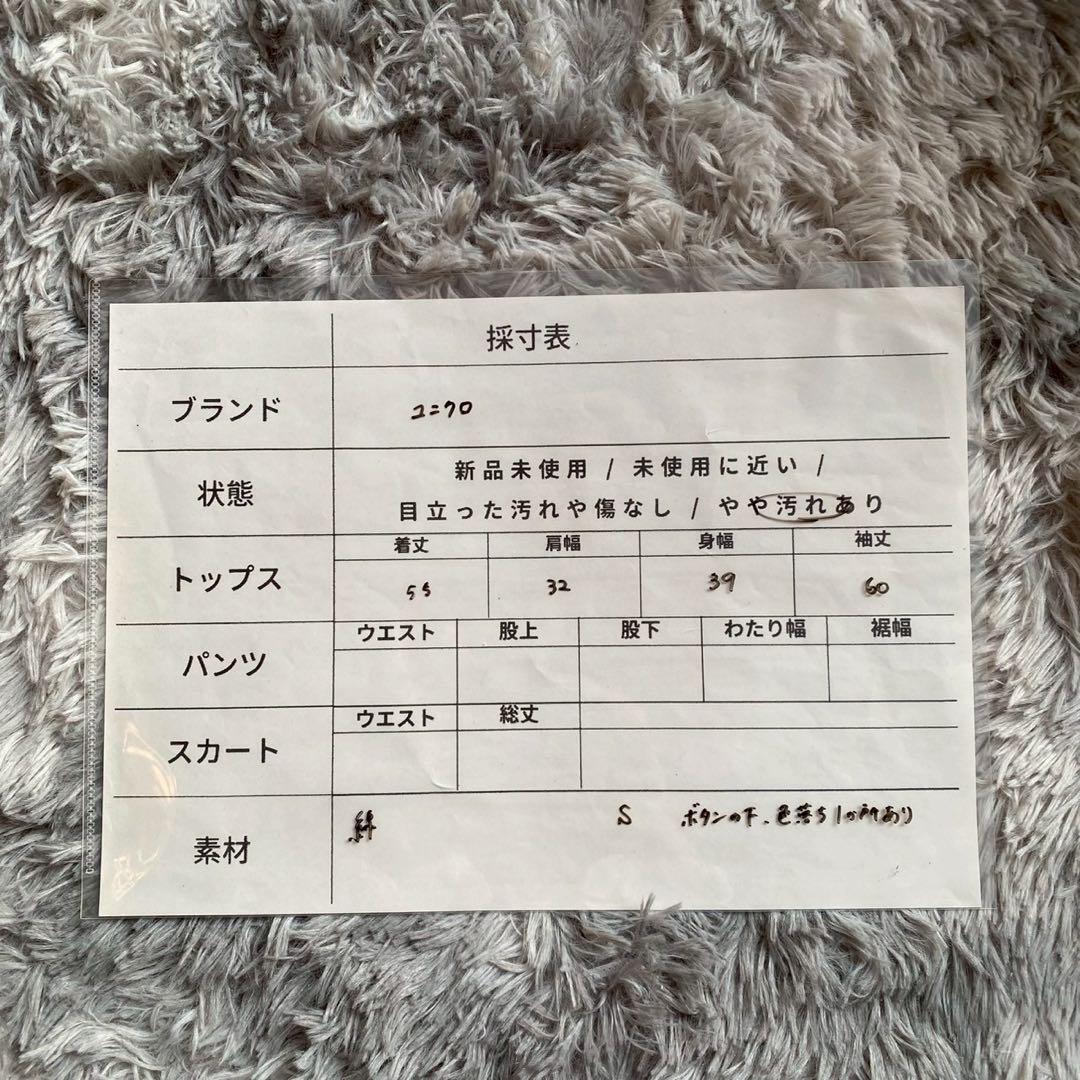 採寸表
ブランド ユニクロ
状態 新品未使用 / 未使用に近い /
目立った汚れや傷なし / やや汚れあり
着丈 肩幅 身幅 袖丈
トップス 55 32 39 60
ウエスト 股上 股下 わたり幅 裾幅
パンツ
ウエスト 総丈
スカート
素材 綿 S ボタンの下、色落ち1か所あり